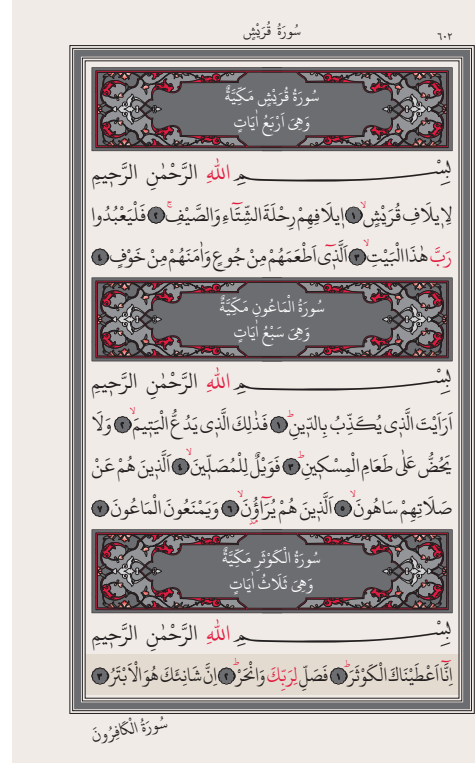 ٦٠٢ سُورَةُ قُرَيْشٍ
سُورَةُ قُرَيْشٍ مَكِّيَّةٌ
وَهِيَ اَرْبَعُ اٰيَاتٍ
بِسْمِ اللّٰهِ الرَّحْمٰنِ الرَّحِيمِ
لِا۪يلَافِ قُرَيْشٍۙ ﴿١﴾ ا۪يلَافِهِمْ رِحْلَةَ الشِّتَٓاءِ وَالصَّيْفِۚ ﴿٢﴾ فَلْيَعْبُدُوا
رَبَّ هٰذَا الْبَيْتِۙ ﴿٣﴾ اَلَّذ۪ٓي اَطْعَمَهُمْ مِنْ جُوعٍ وَاٰمَنَهُمْ مِنْ خَوْفٍ ﴿٤﴾
سُورَةُ الْمَاعُونِ مَكِّيَّةٌ
وَهِيَ سَبْعُ اٰيَاتٍ
بِسْمِ اللّٰهِ الرَّحْمٰنِ الرَّح۪يمِ
اَرَاَيْتَ الَّذ۪ي يُكَذِّبُ بِالدّ۪ينِۜ ﴿١﴾ فَذٰلِكَ الَّذ۪ي يَدُعُّ الْيَت۪يمَۙ ﴿٢﴾ وَلَا
يَحُضُّ عَلٰى طَعَامِ الْمِسْك۪ينِۜ ﴿٣﴾ فَوَيْلٌ لِلْمُصَلّ۪ينَۙ ﴿٤﴾ اَلَّذ۪ينَ هُمْ عَنْ
صَلَاتِهِمْ سَاهُونَۙ ﴿٥﴾ اَلَّذ۪ينَ هُمْ يُرَٓاؤُ۫نَۙ ﴿٦﴾ وَيَمْنَعُونَ الْمَاعُونَ ﴿٧﴾
سُورَةُ الْكَوْثَرِ مَكِّيَّةٌ
وَهِيَ ثَلَاثُ اٰيَاتٍ
بِسْمِ اللّٰهِ الرَّحْمٰنِ الرَّح۪يمِ
اِنَّٓا اَعْطَيْنَاكَ الْكَوْثَرَۜ ﴿١﴾ فَصَلِّ لِرَبِّكَ وَانْحَرْۜ ﴿٢﴾ اِنَّ شَانِئَكَ هُوَ الْاَبْتَرُ ﴿٣﴾
سُورَةُ الْكَافِرُونَ